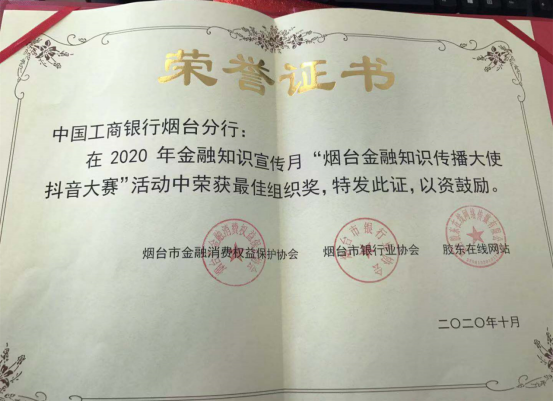 荣誉证书
中国工商银行烟台分行：
在 2020 年金融知识宣传月“烟台金融知识传播大使
抖音大赛”活动中荣获最佳组织奖，特发此证，以资鼓励。
烟台市金融消费权益保护协会 烟台市银行业协会 胶东在线网站
二〇二〇年十月